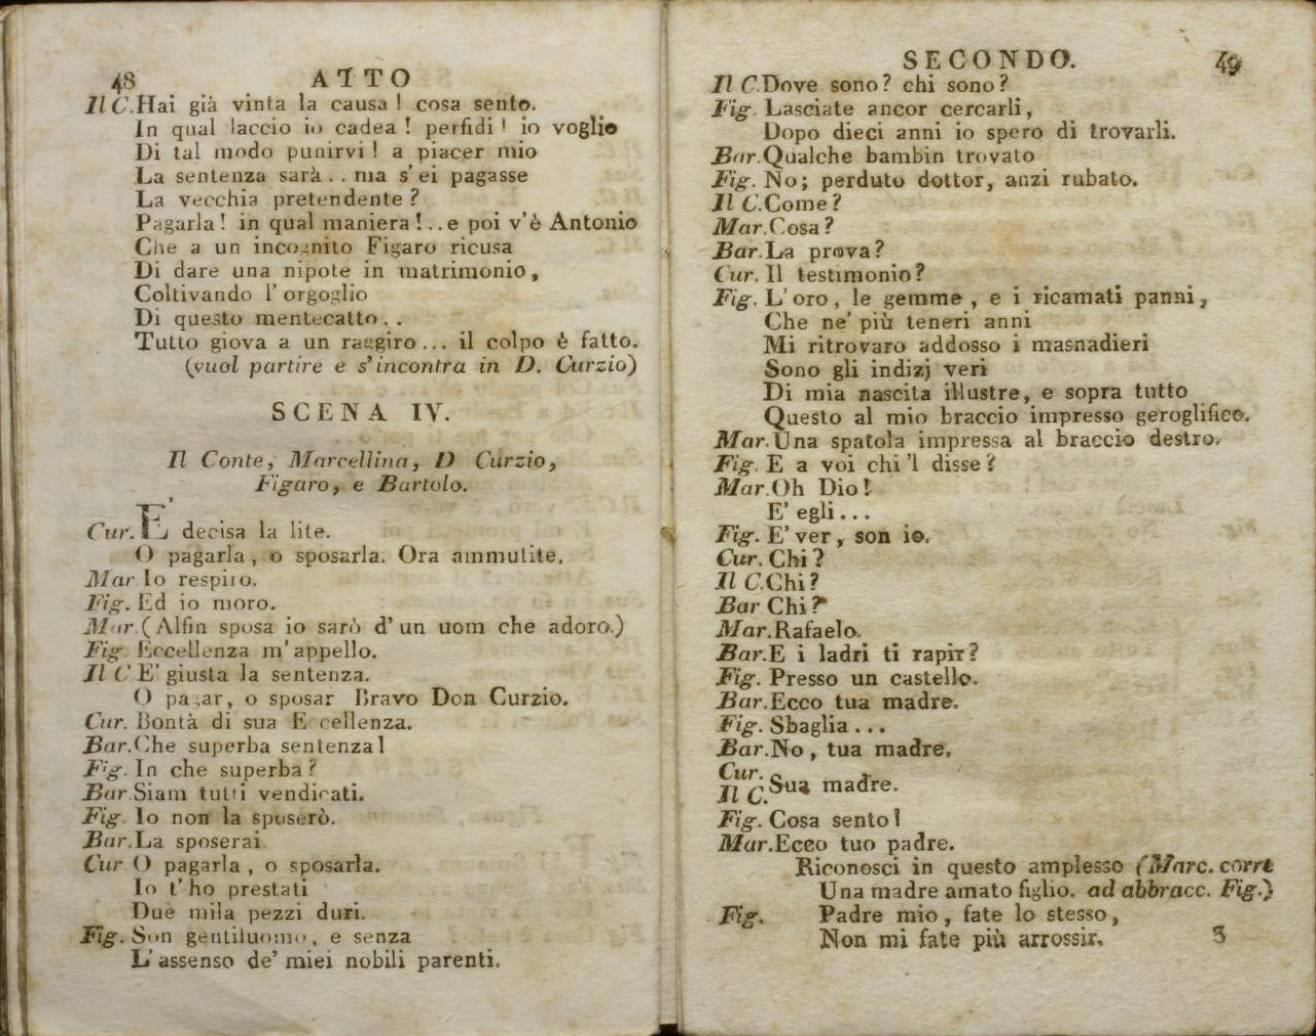 48 ATTO
Il C. Hai già vinta la causa! cosa sento.
In qual laccio io cadea! perfidi! io voglio
Di tal modo punirvi! a piacer mio
La sentenza sarà.. ma s'ei pagasse
La vecchia pretendente?
Pagarla! in qual maniera!..e poi v'è Antonio
Che a un incognito Figaro ricusa
Di dare una nipote in matrimonio,
Coltivando l'orgoglio
Di questo mentecatto..
Tutto giova a un raggiro... il colpo è fatto.
(vuol partire e s'incontra in D. Curzio)
SCENA IV.
Il Conte, Marcellina, D Curzio,
Figaro, e Bartolo.
Cur. E' decisa la lite.
O pagarla, o sposarla. Ora ammutite.
Mar Io respiro.
Fig. Ed io moro.
Mar. (Alfin sposa io sarò d'un uom che adoro.)
Fig. Eccellenza m'appello.
Il C E' giusta la sentenza.
O pagar, o sposar Bravo Don Curzio.
Cur. Bontà di sua Eccellenza.
Bar. Che superba sentenza!
Fig. In che superba?
Bar Siam tutti vendicati.
Fig. Io non la sposerò.
Bar. La sposerai.
Cur O pagarla, o sposarla.
Io t'ho prestati
Due mila pezzi duri.
Fig. Son gentiluomo, e senza
L'assenso de' miei nobili parenti.
SECONDO. 49
Il C. Dove sono? chi sono?
Fig. Lasciate ancor cercarli,
Dopo dieci anni io spero di trovarli.
Bar. Qualche bambin trovato
Fig. No; perduto dottor, anzi rubato.
Il C. Come?
Mar. Cosa?
Bar. La prova?
Cur. Il testimonio?
Fig. L'oro, le gemme, e i ricamati panni,
Che ne' più teneri anni
Mi ritrovaro addosso i masnadieri
Sono gli indizj veri
Di mia nascita illustre, e sopra tutto
Questo al mio braccio impresso geroglifico.
Mar. Una spatola impressa al braccio destro.
Fig. E a voi chi 'l disse?
Mar. Oh Dio!
E' egli...
Fig. E' ver, son io.
Cur. Chi?
Il C. Chi?
Bar Chi?
Mar. Rafaelo.
Bar. E i ladri ti rapir?
Fig. Presso un castello.
Bar. Ecco tua madre.
Fig. Sbaglia...
Bar. No, tua madre.
Cur.
Il C. Sua madre.
Fig. Cosa sento!
Mar. Ecco tuo padre.
Riconosci in questo amplesso (Marc. corre
Una madre amato figlio. ad abbracc. Fig.)
Fig. Padre mio, fate lo stesso,
Non mi fate più arrossir. 3